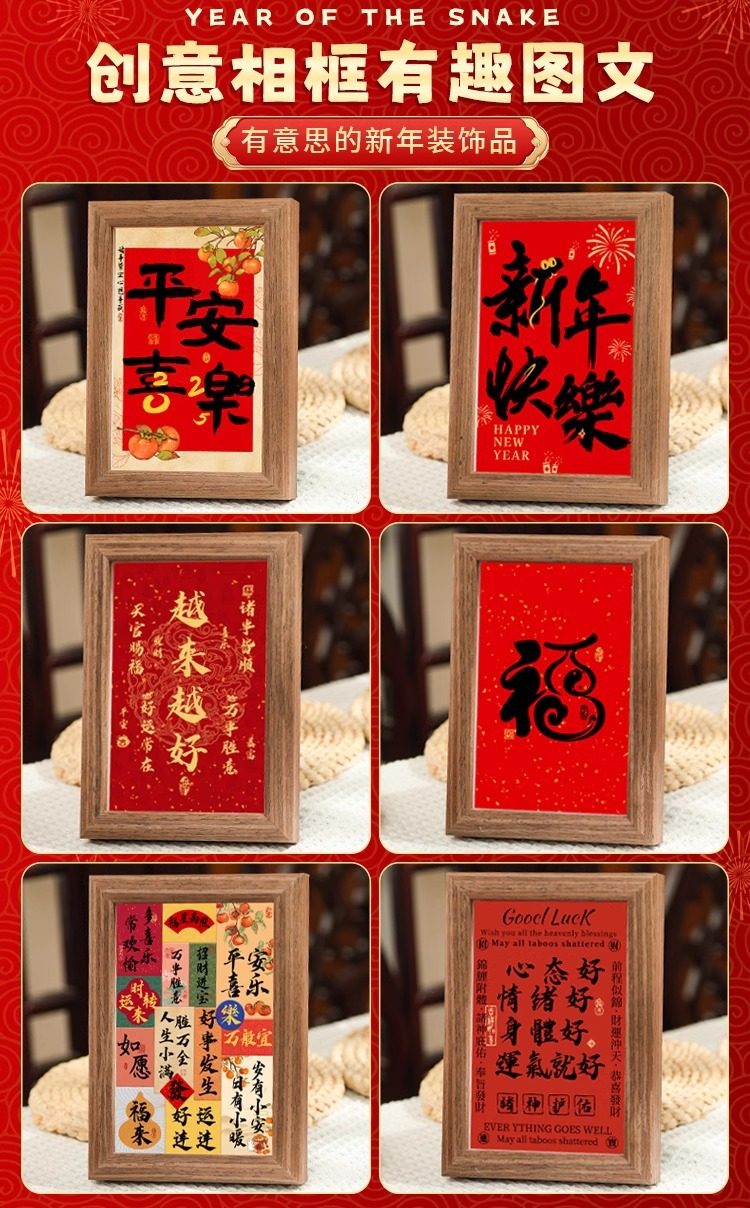 YEAR OF THE SNAKE
创意相框有趣图文
有意思的新年装饰品
平安
喜樂
2025
新年
快樂
HAPPY
NEW
YEAR
越来越好
诸事皆顺
万事胜意
天官赐福
好运常在
平安
喜乐
福
多喜乐
常欢愉
万事胜意
招财进宝
平安
喜乐
时来
运转
樂
万般宜
如愿
人生小满
胜万全
好事发生
發
福来
好运
连连
安有小安
日有小暖
Good Luck
Wish you all the heavenly blessings
May all taboos shattered
錦鯉附體·諸神庇佑·奉旨發財
心态好
情緒好
身體好
運氣就好
前程似錦·財運沖天·恭喜發財
諸神护佑
EVERYTHING GOES WELL
May all taboos shattered